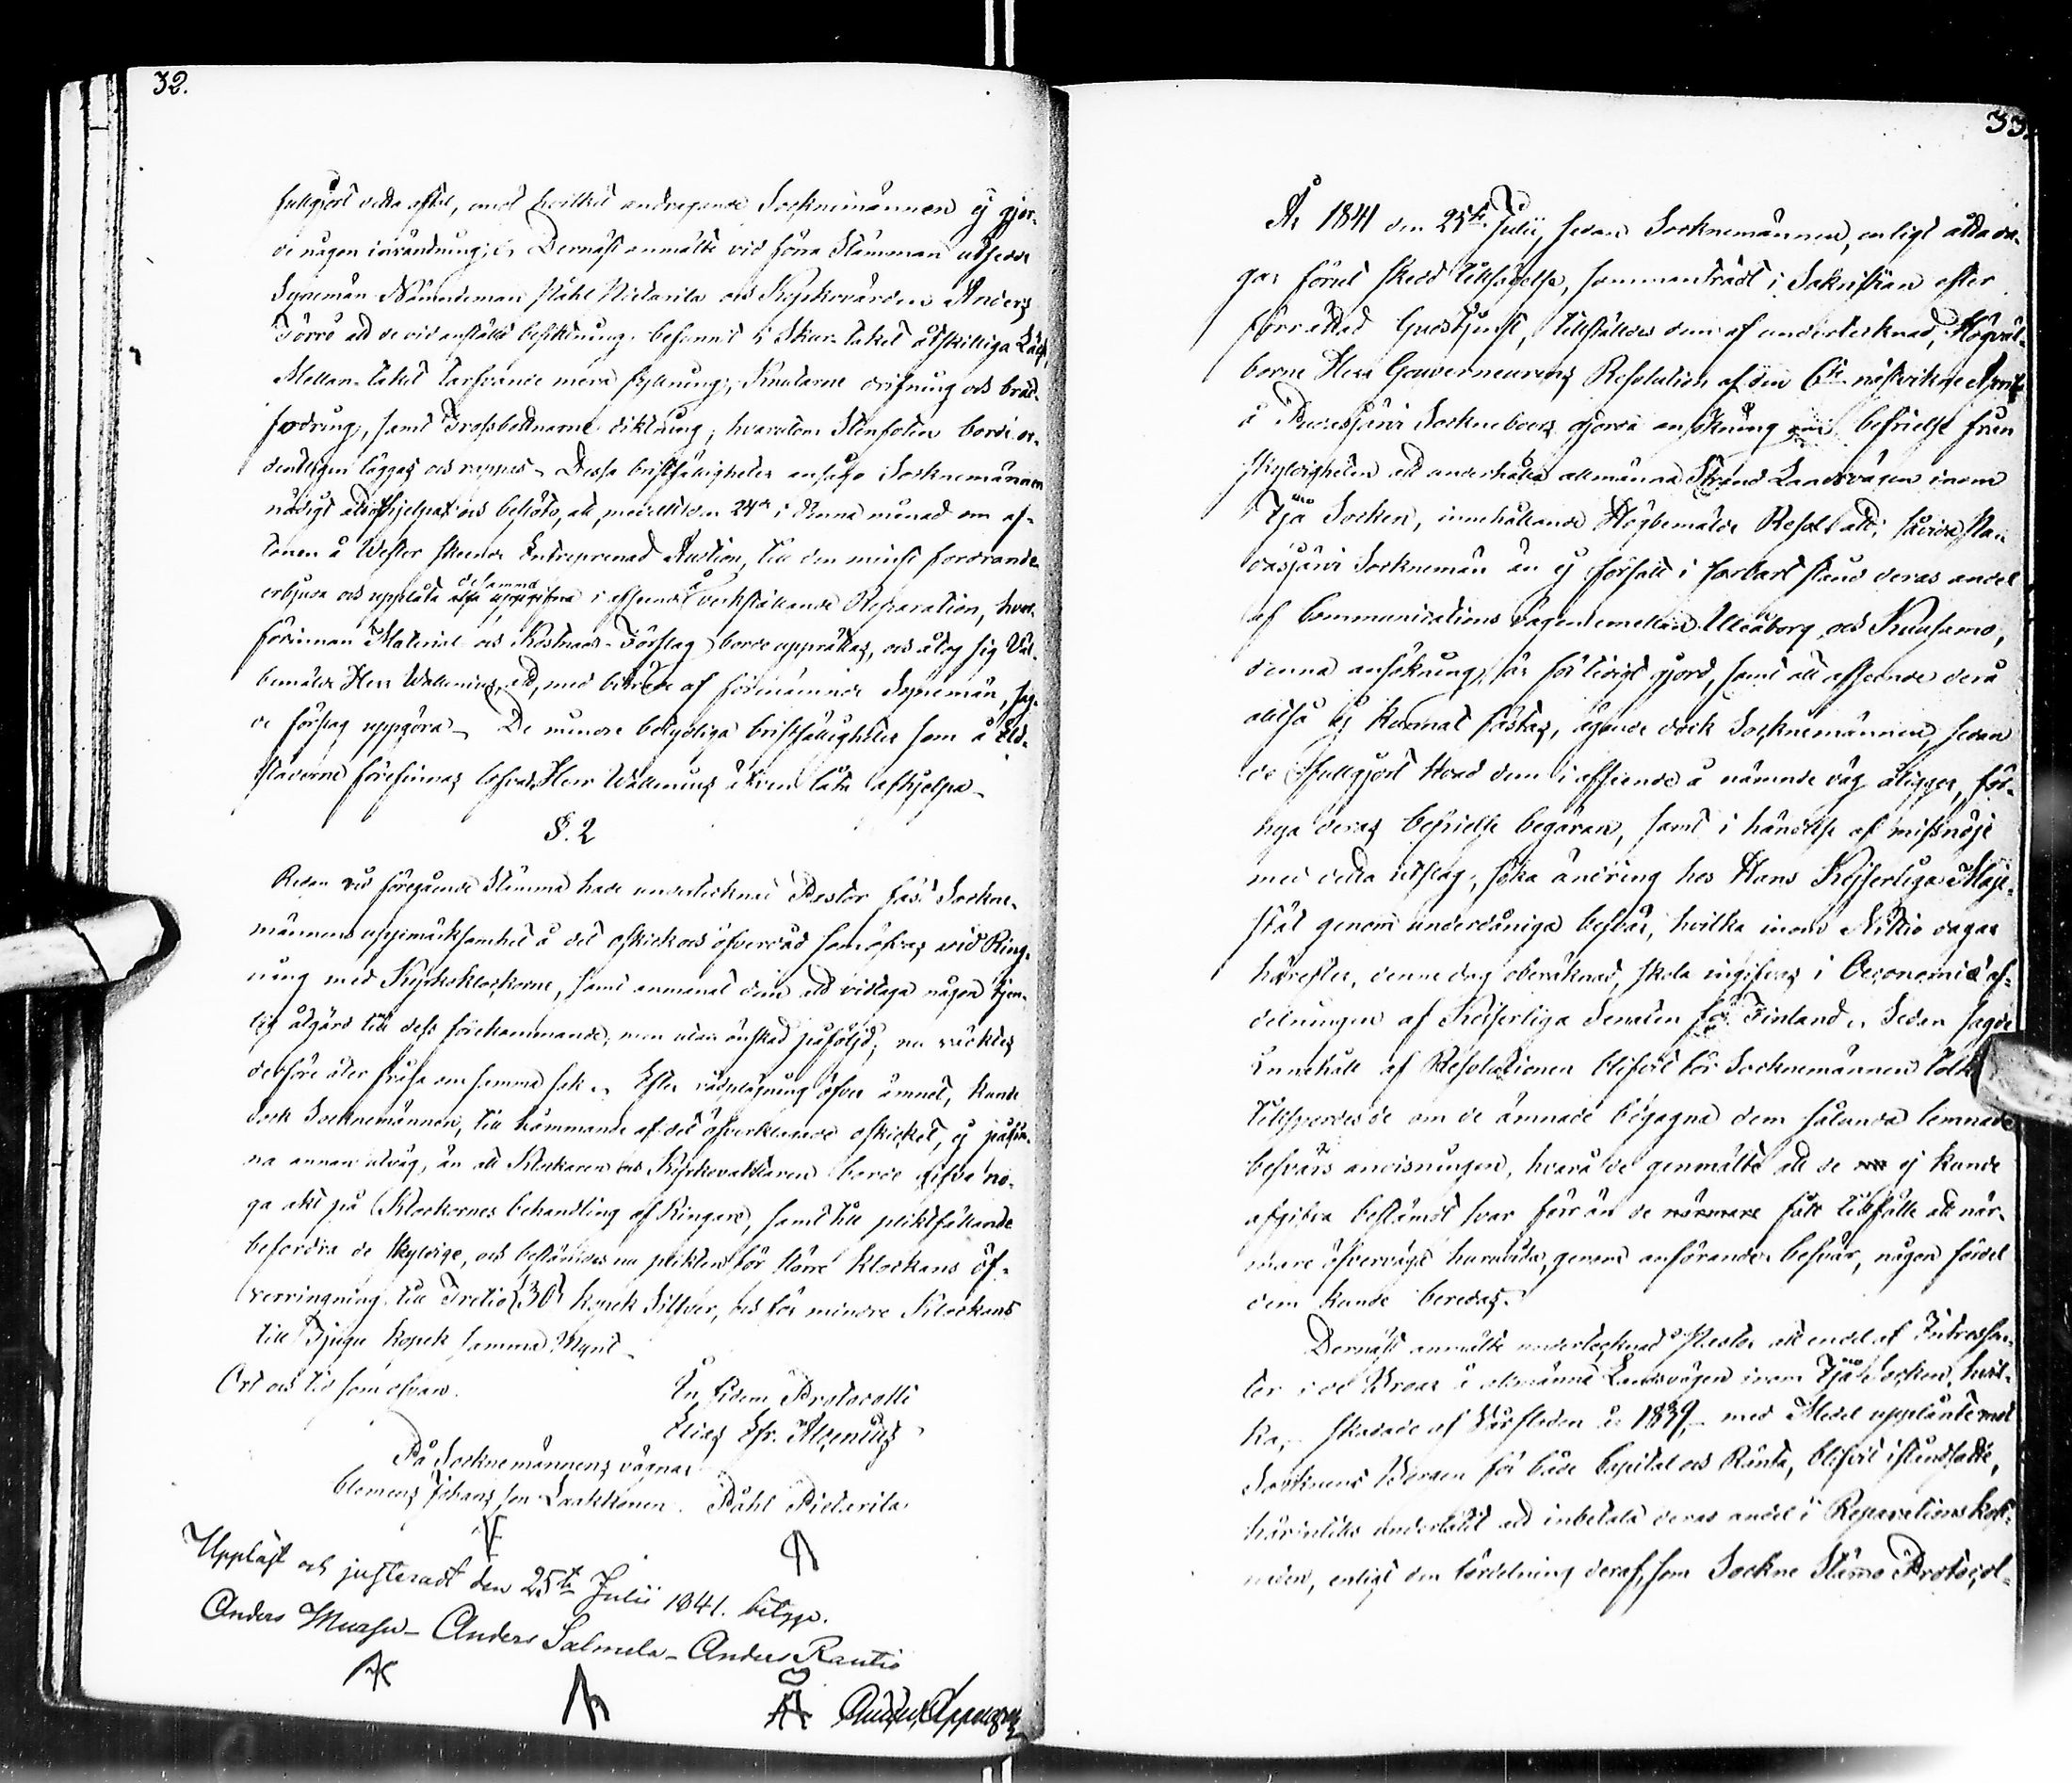 32.
fullgjort detta aftal, emot hvilket andragande Socknemännen ej gjor-
de någon invändning; Dernäst anmälte vid förra Stämman utsedde
Synemän Nämndeman Påhl Pietarila och Kyrkovärden Anders
Törrö att de vid anställd besiktning befunnit i Skur-taket åtskilliga Läck,
Mellan-taket tarfvande mera fyllning, Knutarne drifning och bräd-
fordring, samt Trossbottnarne diktning, hvarutom Stenfoten borde or-
dentligen läggas och rappas. Dessa bristfälligheter ansågo Socknemännen
nödigt att afhjelpas och beslöto, att, medelst den 24de i denna månad om af-
tonen å Wester skeende Entreprenad Auction, till den minst fordrande
erbjuda och upplåta desamma i afseende å verkställande Reparation, hvar-
förinnan Material och Kostnads-Förslag borde upprättas, och åtog sig Väl-
bemälde Herr Wallenius, att, med biträde af förenämnde Synemän, sag-
de förslag uppgöra. De mindre betydliga bristfälligheter som å Eld-
städerne förefinnas lofvade Herr Wallenius äfven låta afhjelpa.
§. 2
Redan vid föregående Stämma hade undertecknad Pastor fäst Sockne-
männens uppmärksamhet å det oskick och öfvervåld som öfvas vid Ring-
ning med Kyrkoklockorne, samt anmanat dem att vidtaga någon tjen-
lig åtgärd till dess förekommande, men utan önskad påföljd; nu väcktes
derföre åter fråga om samma sak. Efter rådplägning öfver ämnet, kunde
dock Socknemännen, till hämmande af det öfverklagade oskicket, ej påfin-
na annan utväg, än att Klockaren och Kyrkovaktaren borde gifva no-
ga akt på Klockornes behandling af Ringare, samt till pliktfällande
befordra de skyldige, och bestämdes nu plikten för större Klockans öf-
verringning till Tretio (30) kopek Silfver, och för mindre Klockans
till Tjugu kopek samma Mynt.
Ort och tid som ofvan.
In fidem Protocolli
Elias Efr. Alcenius
På Socknemännens vägnar
Clemens Johans son Laakkonen. Påhl Pietarila
Uppläst och justeradt den 25te Julii 1841. betyga.
Anders Mursu - Anders Salmela - Anders Rautio
33.
År 1841 den 25te Julii, sedan Socknemännen, enligt åtta da-
gar förut skedd tillsägelse, sammanträdt i Sakristian efter
förrättad Gudstjenst, tillställdes dem af undertecknad, Högväl-
borne Herr Gouverneurens Resolution af den 6te nästvikne April
å Pudasjärvi Socknebors gjorda ansökning om befrielse från
skyldigheten att underhålla allmänna Strand Landsvägen inom
Ijo Socken, innehållande Högbemälde Resol. att; såvida Pu-
dasjärvi Socknemän än ej försatt i farbart stånd deras andel
af Communications vägen emellan Uleåborg och Kuusamo,
denna ansökning är för tidigt gjord, samt att afseende derå
alltså ej kunnat fästas, ägande dock Socknemännen, sedan
de fullgjort hvad dem i afseende å nämnde väg åligger, för-
nya deras befrielse begäran, samt i händelse af missnöje
med detta utslag, söka ändring hos Hans Kejserliga Maje-
stät genom underdåniga besvär, hvilka inom Nittio dagar
härefter, denna dag oberäknad, skola ingifvas i Oeconomiæ af-
delningen af Kejserliga Senaten för Finland. Sedan sagde
innehåll af Resolutionen blifvit för Socknemännen tolk
tillsporde de om de ämnade begagna dem sålunda lemnade
besvärs anvisningen, hvarå de genmälte att de ej kunde
afgifva bestämdt svar förr än de fått tillfälle att när-
mare öfverväga huruvida, genom anförande besvär, någon fördel
dem kunde beredas.
Dernäst anmälte undertecknad Pastor att en del af Intressen-
ter i de Broar å allmänna Landsvägen inom Ijo Socken, hvil-
ka, skadade af Vårfloden år 1839, med Medel upplånte mot
Socknens Borgen för både Capital och Ränta, blifvit iståndsatte,
härintills underlåtit att inbetala deras andel i Reparations kost-
naden, enligt den fördelning deraf, som Sockne Stämmo Protocol-